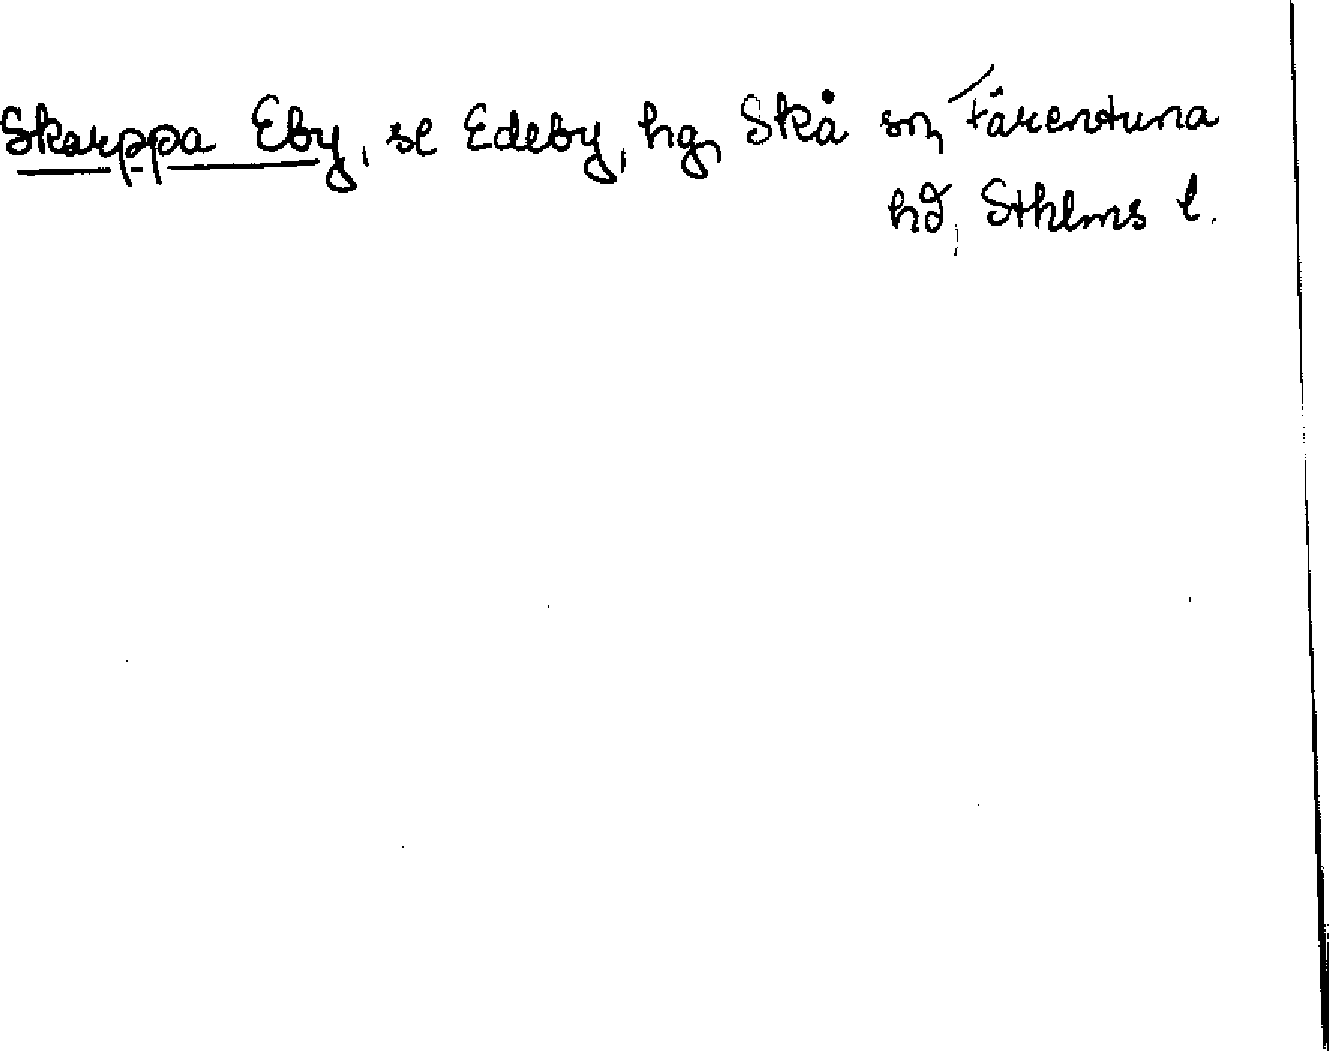 Skarppa Eby, se Edeby, hg, Skå sn, Färentuna
hd, Sthlms l.